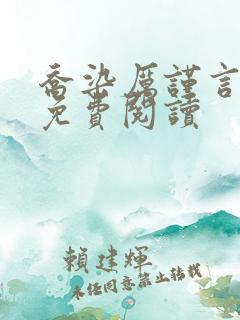 喬染厲謹言
免費閱讀
賴建輝
未經同意禁止轉載